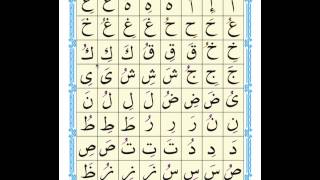 أَ إِ أُ هَ هِ هُ عَ عِ
عُ حَ حِ حُ غَ غِ غُ خَ
خِ خُ قَ قِ قُ كَ كِ كُ
جَ جِ جُ شَ شِ شُ يَ يِ
يُ ضَ ضِ ضُ لَ لِ لُ نَ
نِ نُ رَ رِ رُ طَ طِ طُ
دَ دِ دُ تَ تِ تُ صَ صِ
صُ سَ سِ سُ زَ زِ زُ ظَ